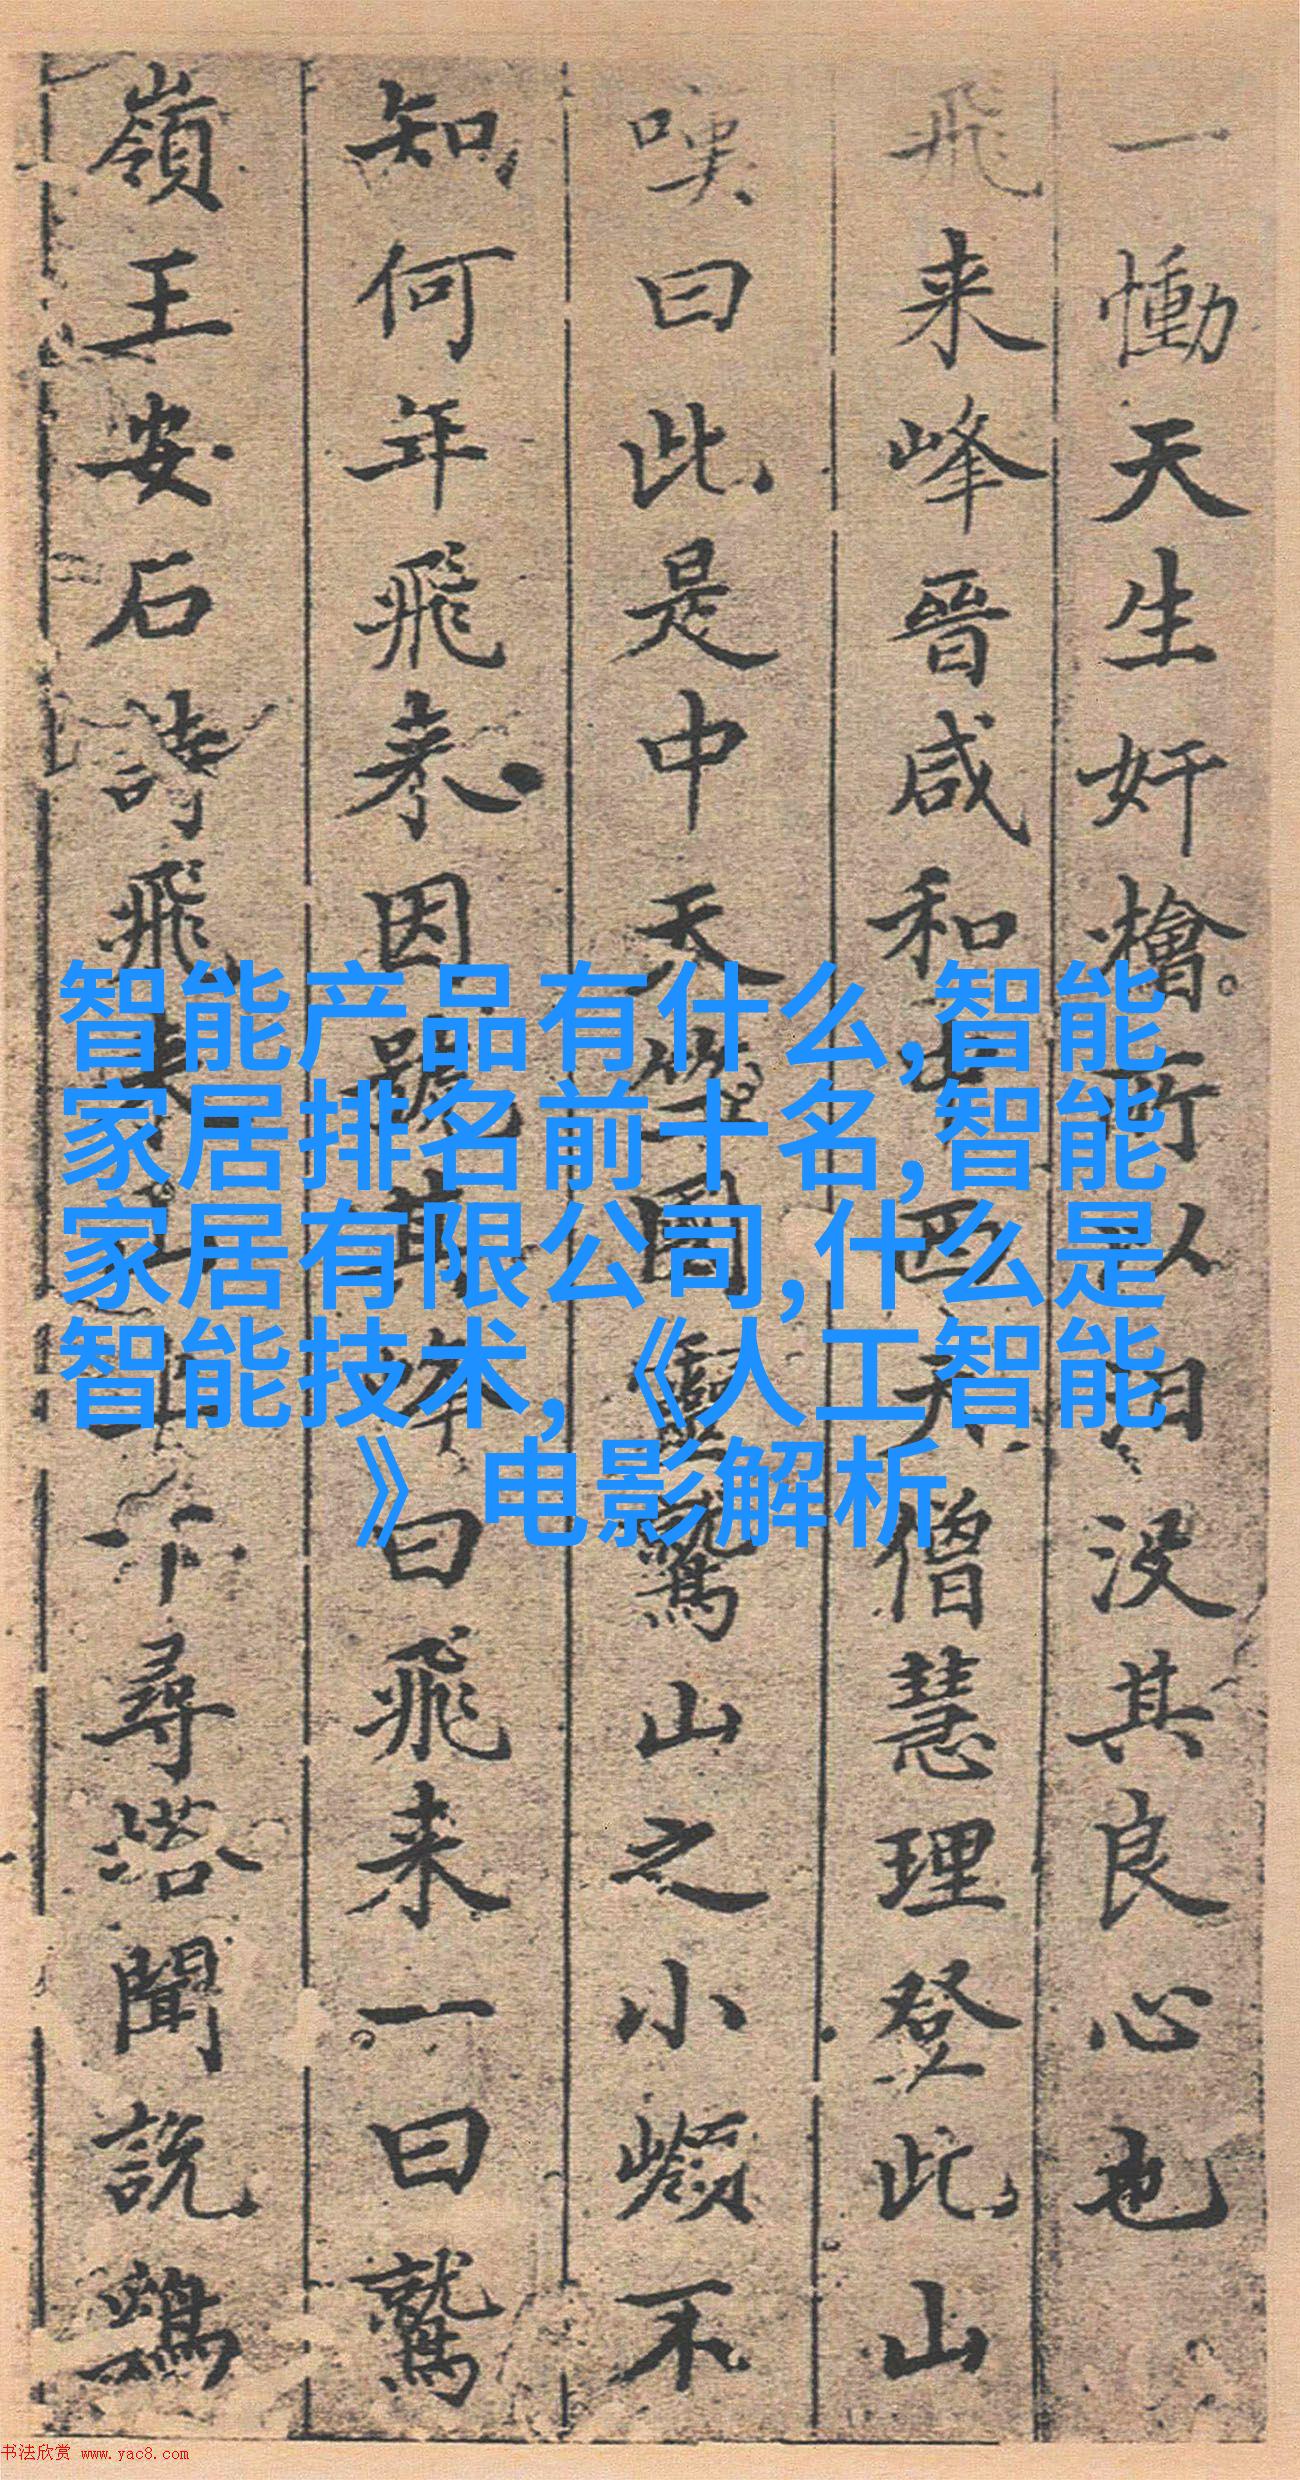 一慟天生奸檜所以没其良心也
飛来峰晉咸和中西天僧慧理登此山
嘆曰此是中天竺國靈鷲山之小嶺不
知何年飛来因號其峰曰飛来一曰鷲
嶺王安石詩飛来山上千尋塔聞説鷄
智能产品有什么,智能
家居排名前十名,智能
家居有限公司,什么是
智能技术,《人工智能
》电影解析
书法欣赏 www.yac8.com